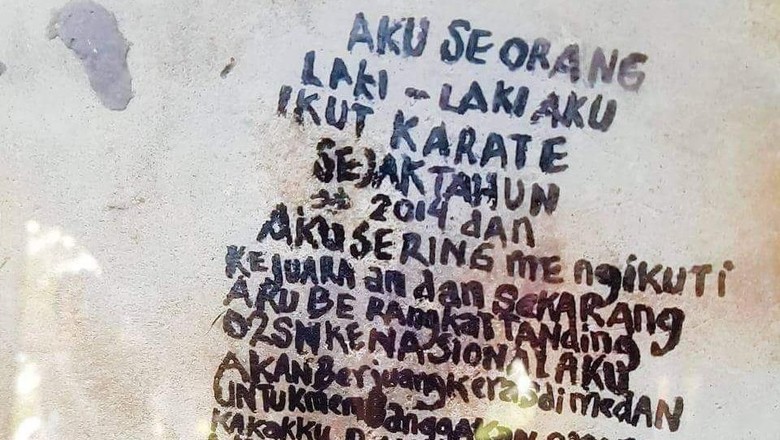 AKU SEORANG
LAKI - LAKI AKU
IKUT KARATE
SEJAK TAHUN
2014 dAN
AKU SERING mengikuTi
KEJUARAan dan SEKARANG
AKU BERANGKAT TANding
O2SN KE NASIONAL AKU
AKAN Berjuang Keras di medAN
UNTUK membANGGAKAN
KAKAKKU